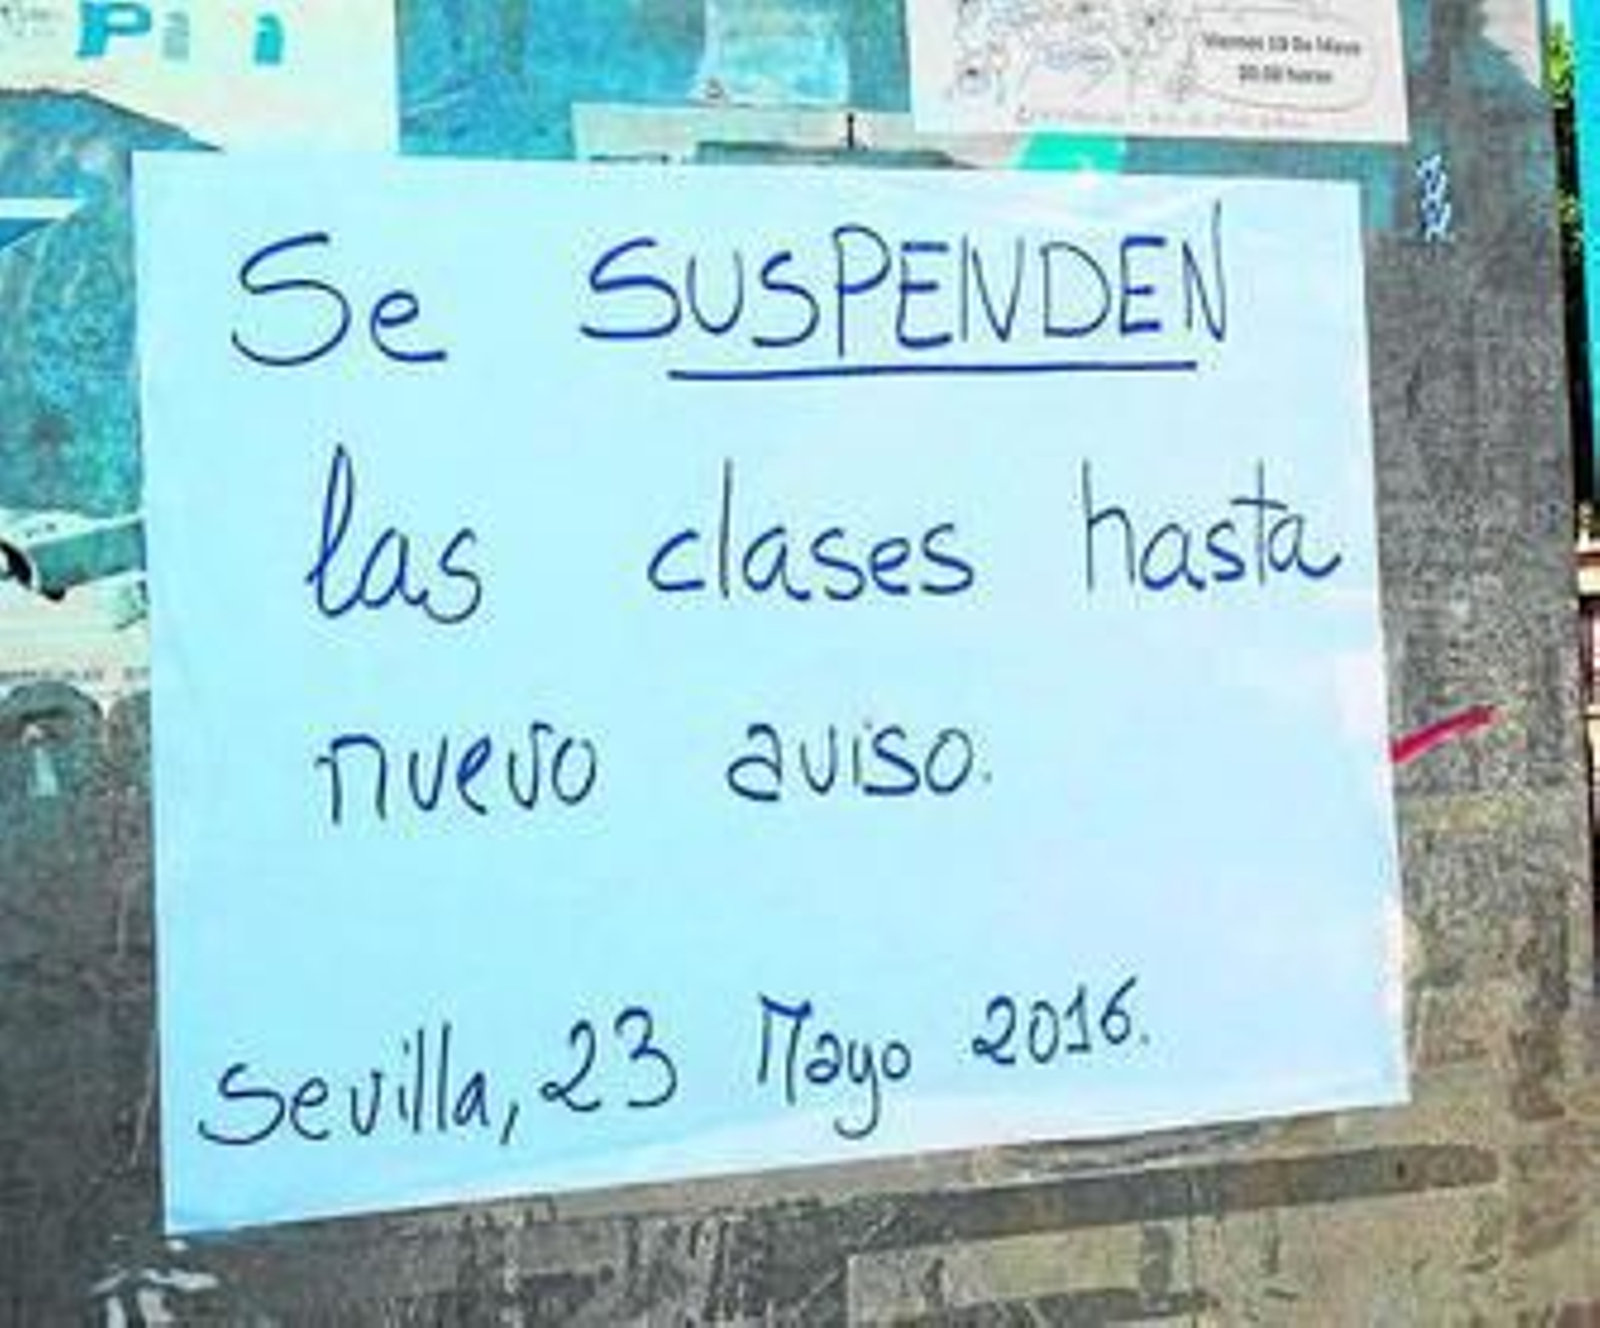 Viernes 13 De Mayo
20:30 horas
Se SUSPENDEN
las clases hasta
nuevo aviso.
Sevilla, 23 Mayo 2016.